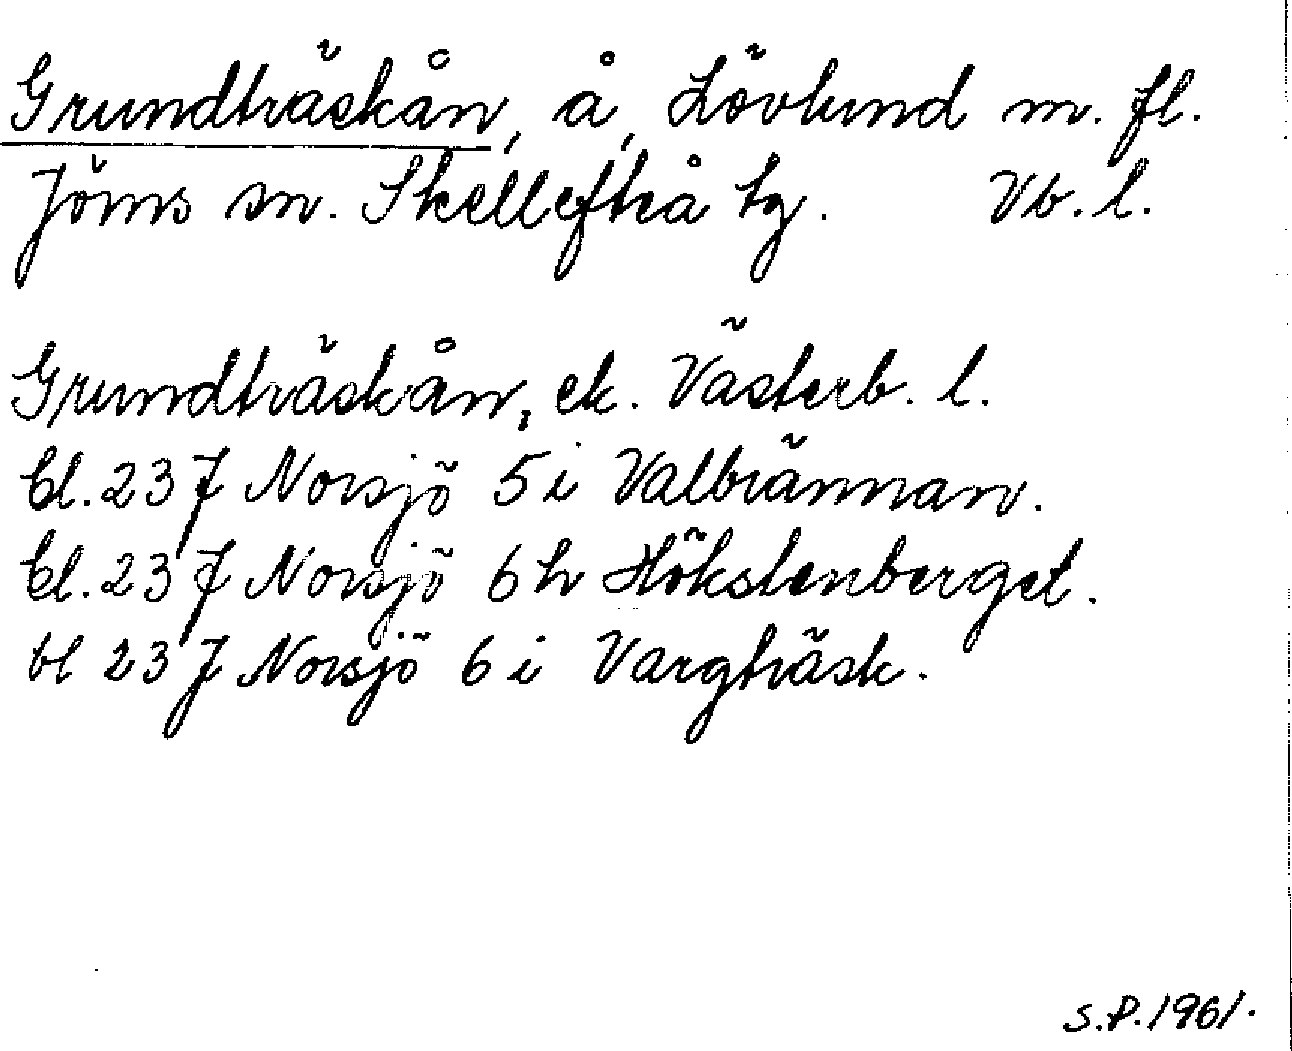 Grundträskån, å, Lövlund m. fl.
Jörns sn. Skellefteå tg. Vb. l.
Grundträskån, ek. Västerb. l.
bl. 23 J Norsjö 5 i Valbrännan.
bl. 23 J Norsjö 6 h Hökstenberget.
bl 23 J Norsjö 6 i Vargträsk.
S.P. 1961.